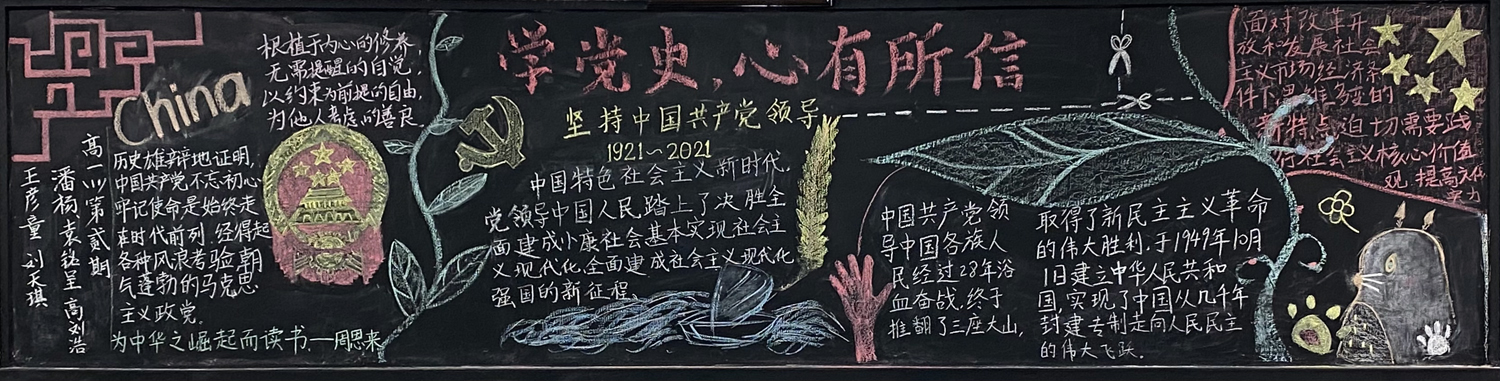 China
高一川第贰期
潘杨 袁铉呈 高刘浩
王彦童 刘天琪
根植于内心的修养，
无需提醒的自觉，
以约束为前提的自由，
为他人着虑的善良
历史雄辩地证明，
中国共产党不忘初心
牢记使命是始终走
在时代前列、经得起
各种风浪考验、朝
气蓬勃的马克思
主义政党。
为中华之崛起而读书。—周恩来
学党史，心有所信
坚持中国共产党领导
1921～2021
中国特色社会主义新时代，
党领导中国人民踏上了决胜全
面建成小康社会基本实现社会主
义现代化，全面建成社会主义现代化
强国的新征程。
中国共产党领
导中国各族人
民经过28年浴
血奋战，终于
推翻了三座大山，
取得了新民主主义革命
的伟大胜利，于1949年10月
1日建立中华人民共和
国，实现了中国从几千年
封建专制走向人民民主
的伟大飞跃。
面对改革开
放和发展社会
主义市场经济条
件下思维多变的
新特点迫切需要践
行社会主义核心价值
观，提高文化
实力